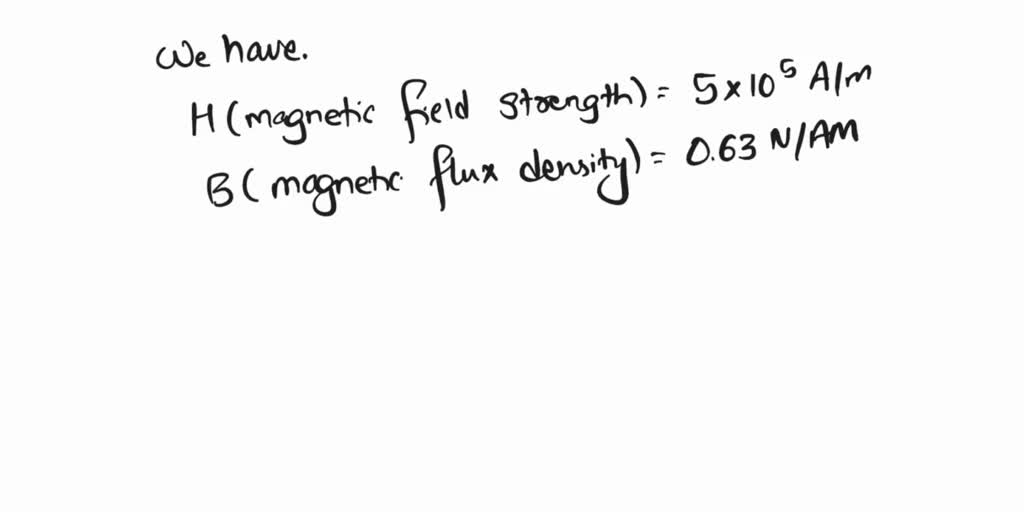 We have.
H (magnetic field strength) = 5×10⁵ A/m
B ( magnetic flux density) = 0.63 N/AM